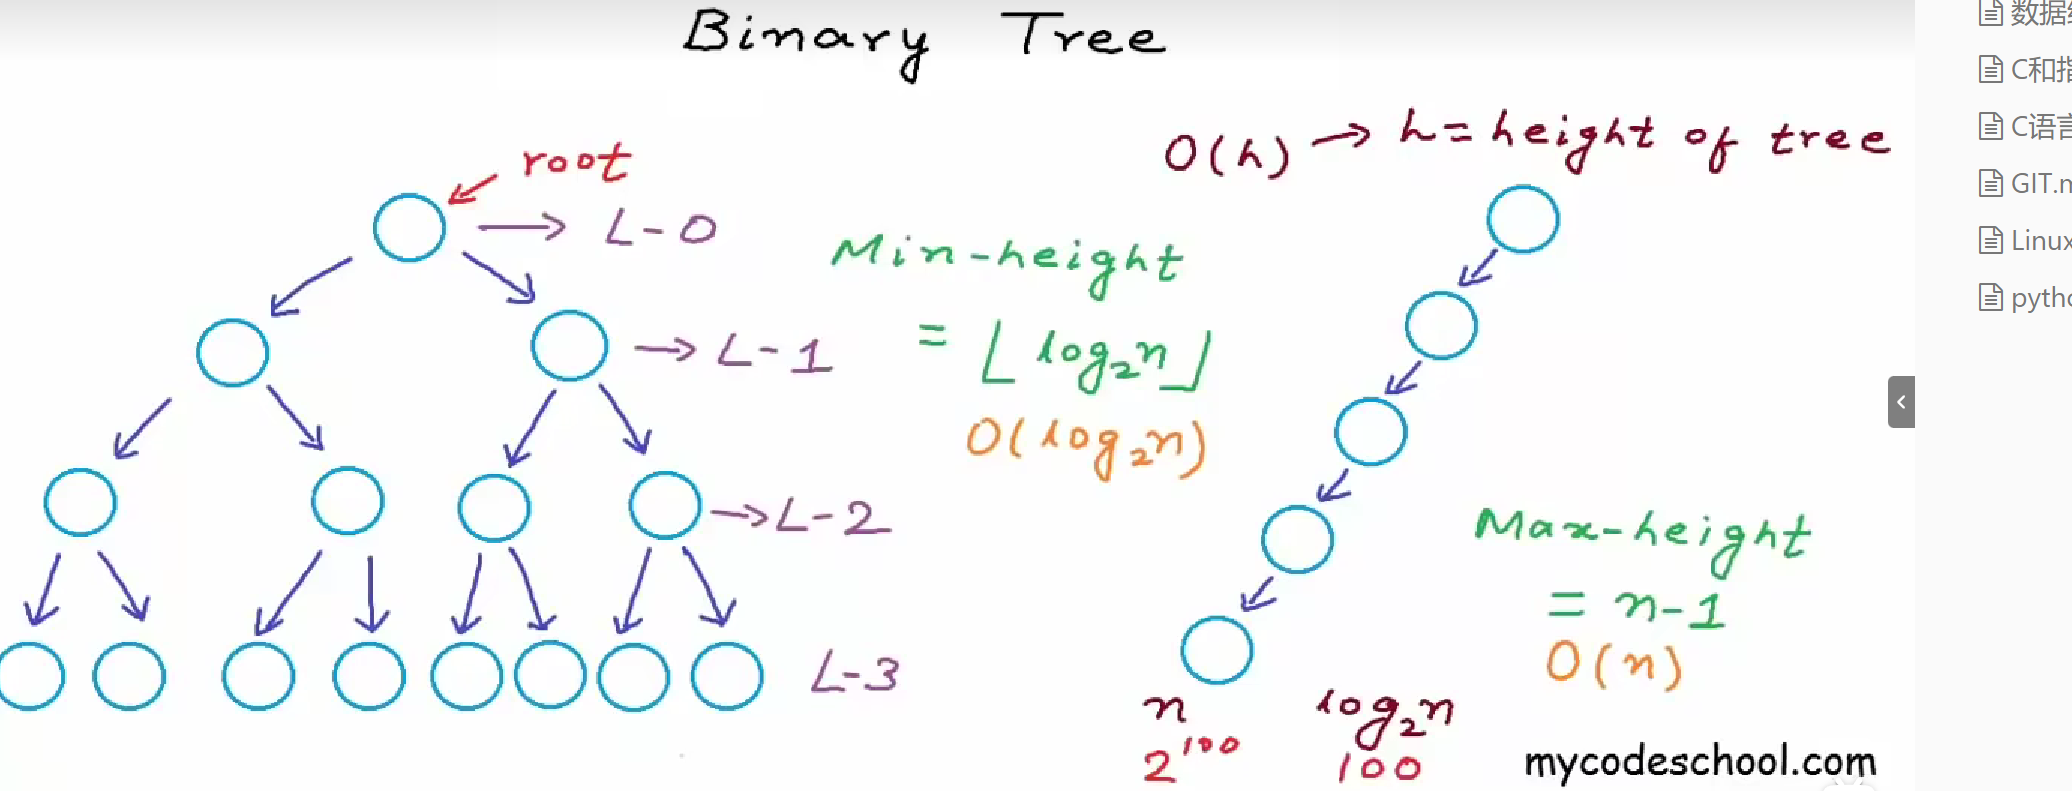 Binary Tree
root
L-0
L-1
L-2
L-3
Min-height
= ⌊log₂n⌋
O(log₂n)
O(h) → h = height of tree
Max-height
= n-1
O(n)
n log₂n
2¹⁰⁰ 100
mycodeschool.com
数据
C和指
C语言
GIT.m
Linux
pytho